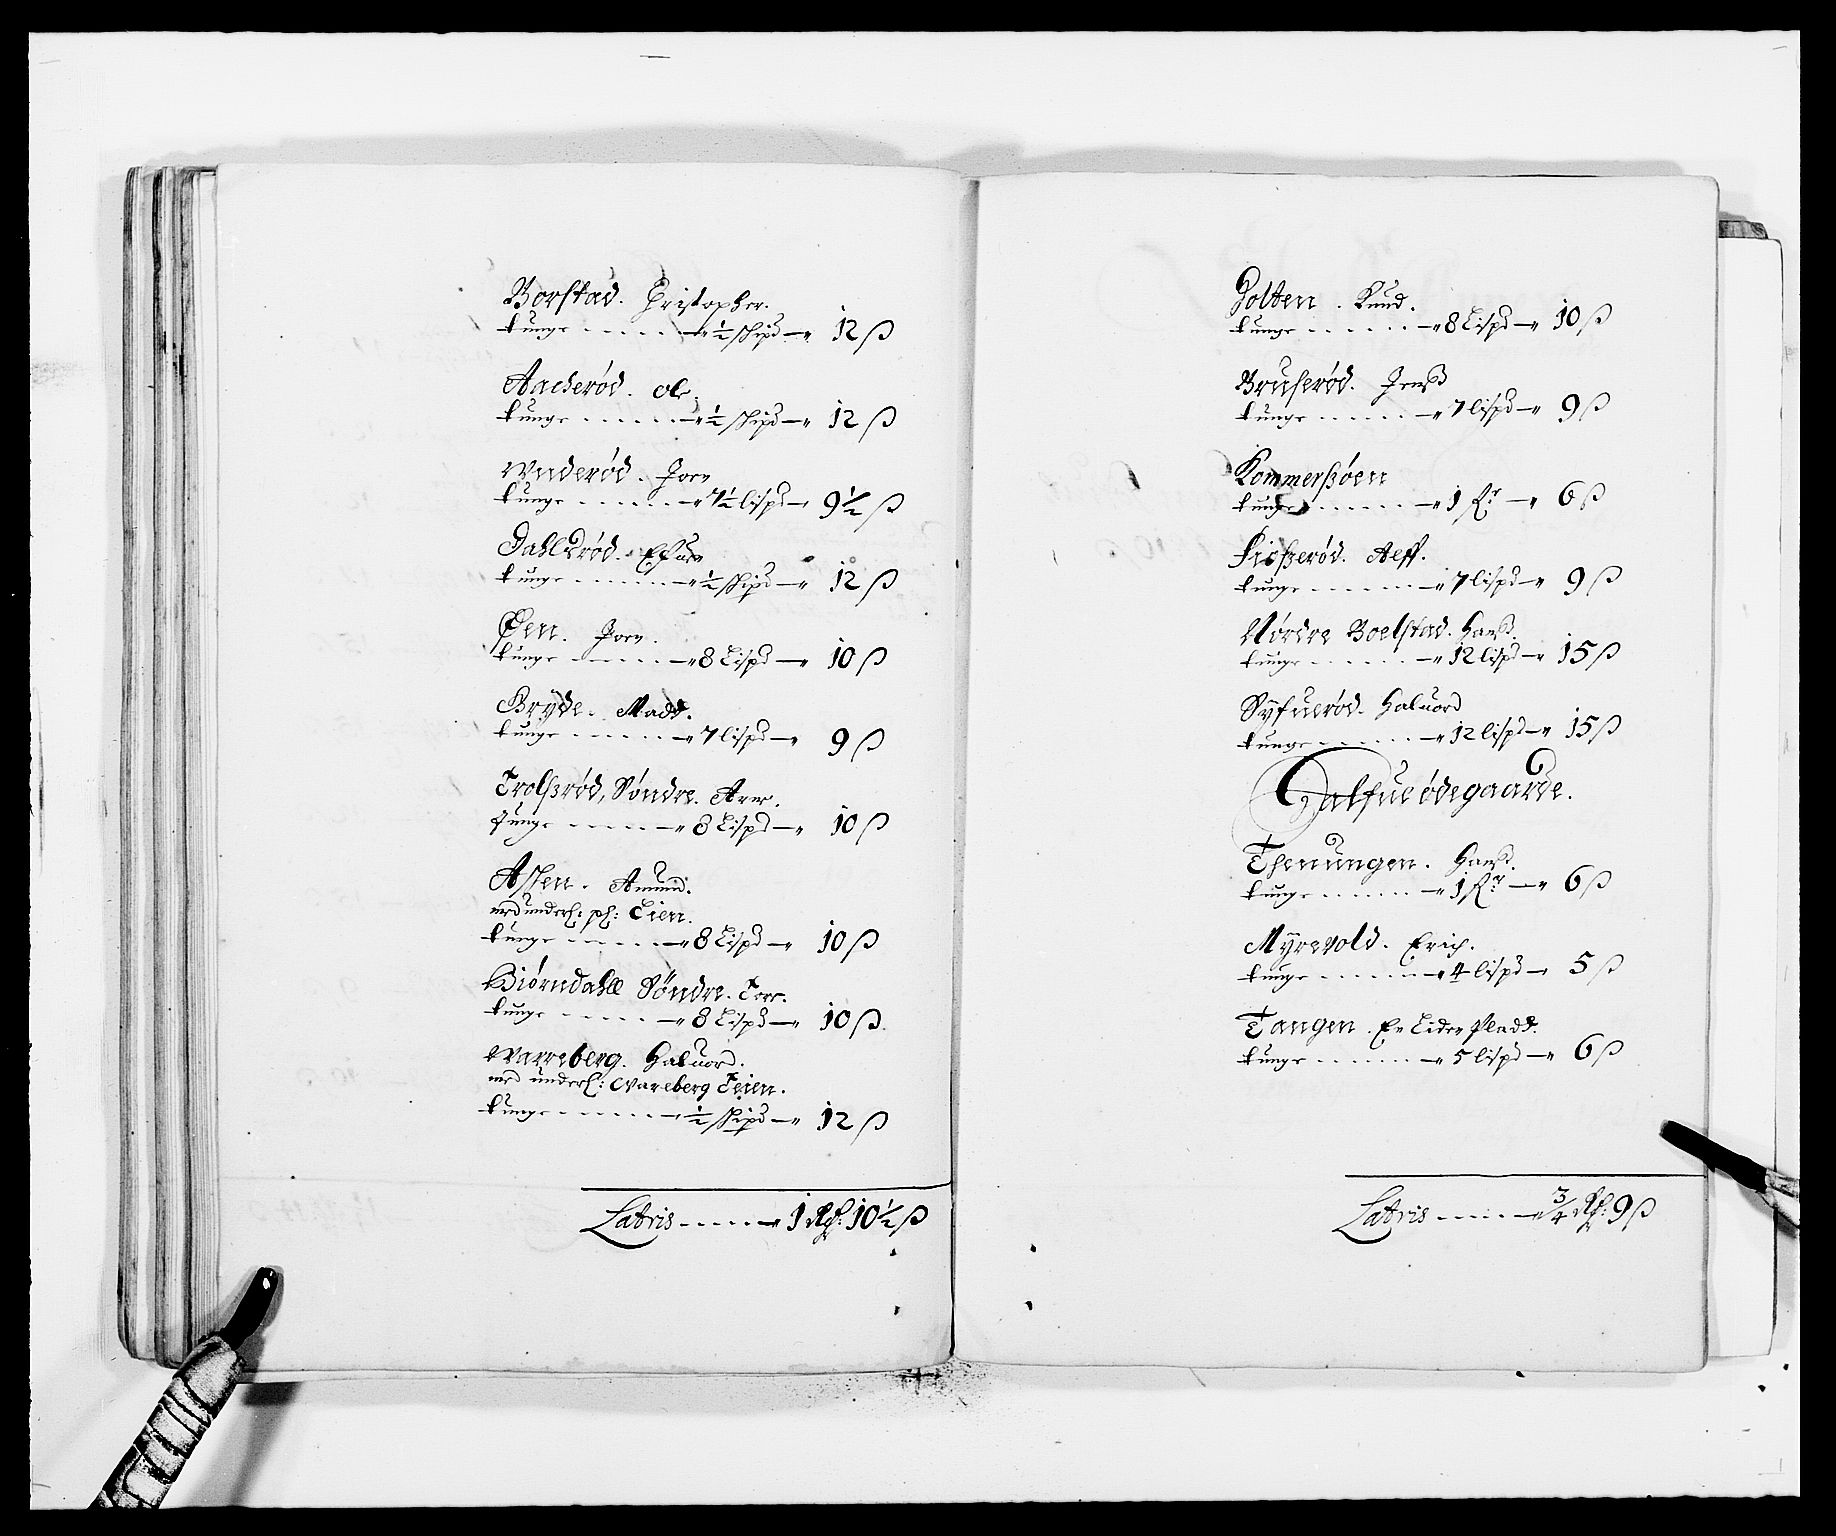 Borstad. Christopher.
tunge - - - - - - 1/2 skipd — 12 ß
Aacherød. Ole.
tunge - - - - - - 1/2 skipd — 12 ß
Wnderød. Joen
tunge - - - - - - 7 1/2 lispd — 9 1/2 ß
Dahlsrød.
tunge - - - - - - 1/2 skipd — 12 ß
Øen. Joen.
tunge - - - - - - 8 Lispd — 10 ß
Bryde. Madß.
tunge - - - - - - 7 lispd — 9 ß
Trolßrød, Søndre. Arne.
tunge - - - - - - 8 Lispd — 10 ß
Aslen. Amund.
med underl: pl: Eien.
tunge - - - - - - 8 Lispd — 10 ß
Biørndahll Søndre. Tore.
tunge - - - - - - 8 Lispd — 10 ß
Warreberg. Haluord.
med underl: Wareberg Teien.
tunge - - - - - - 1/2 skipd — 12 ß
Latris - - - - - 1 Rd: 10 1/2 ß
Holten. Knud.
tunge - - - - - - 8 Lispd — 10 ß
Bruserød. Jenß
tunge - - - - - - 7 lispd — 9 ß
Kommersøen
tunge - - - - - - 1 Fr — 6 ß
Fioserød. Alff.
tunge - - - - - - 7 lispd — 9 ß
Nørdre Boelstad. Hanß.
tunge - - - - - - 12 lispd — 15 ß
Syfuerød. Haluord
tunge - - - - - - 12 lispd — 15 ß
Halfue ødegaarde.
Thenungen. Hanß.
tunge - - - - - - 1 Fr — 6 ß
Myrevold. Erich.
tunge - - - - - - 4 lispd — 5 ß
Tangen. En Liden Pladß.
tunge - - - - - - 5 lispd — 6 ß
Latris - - - - - 3/4 Rd: 9 ß